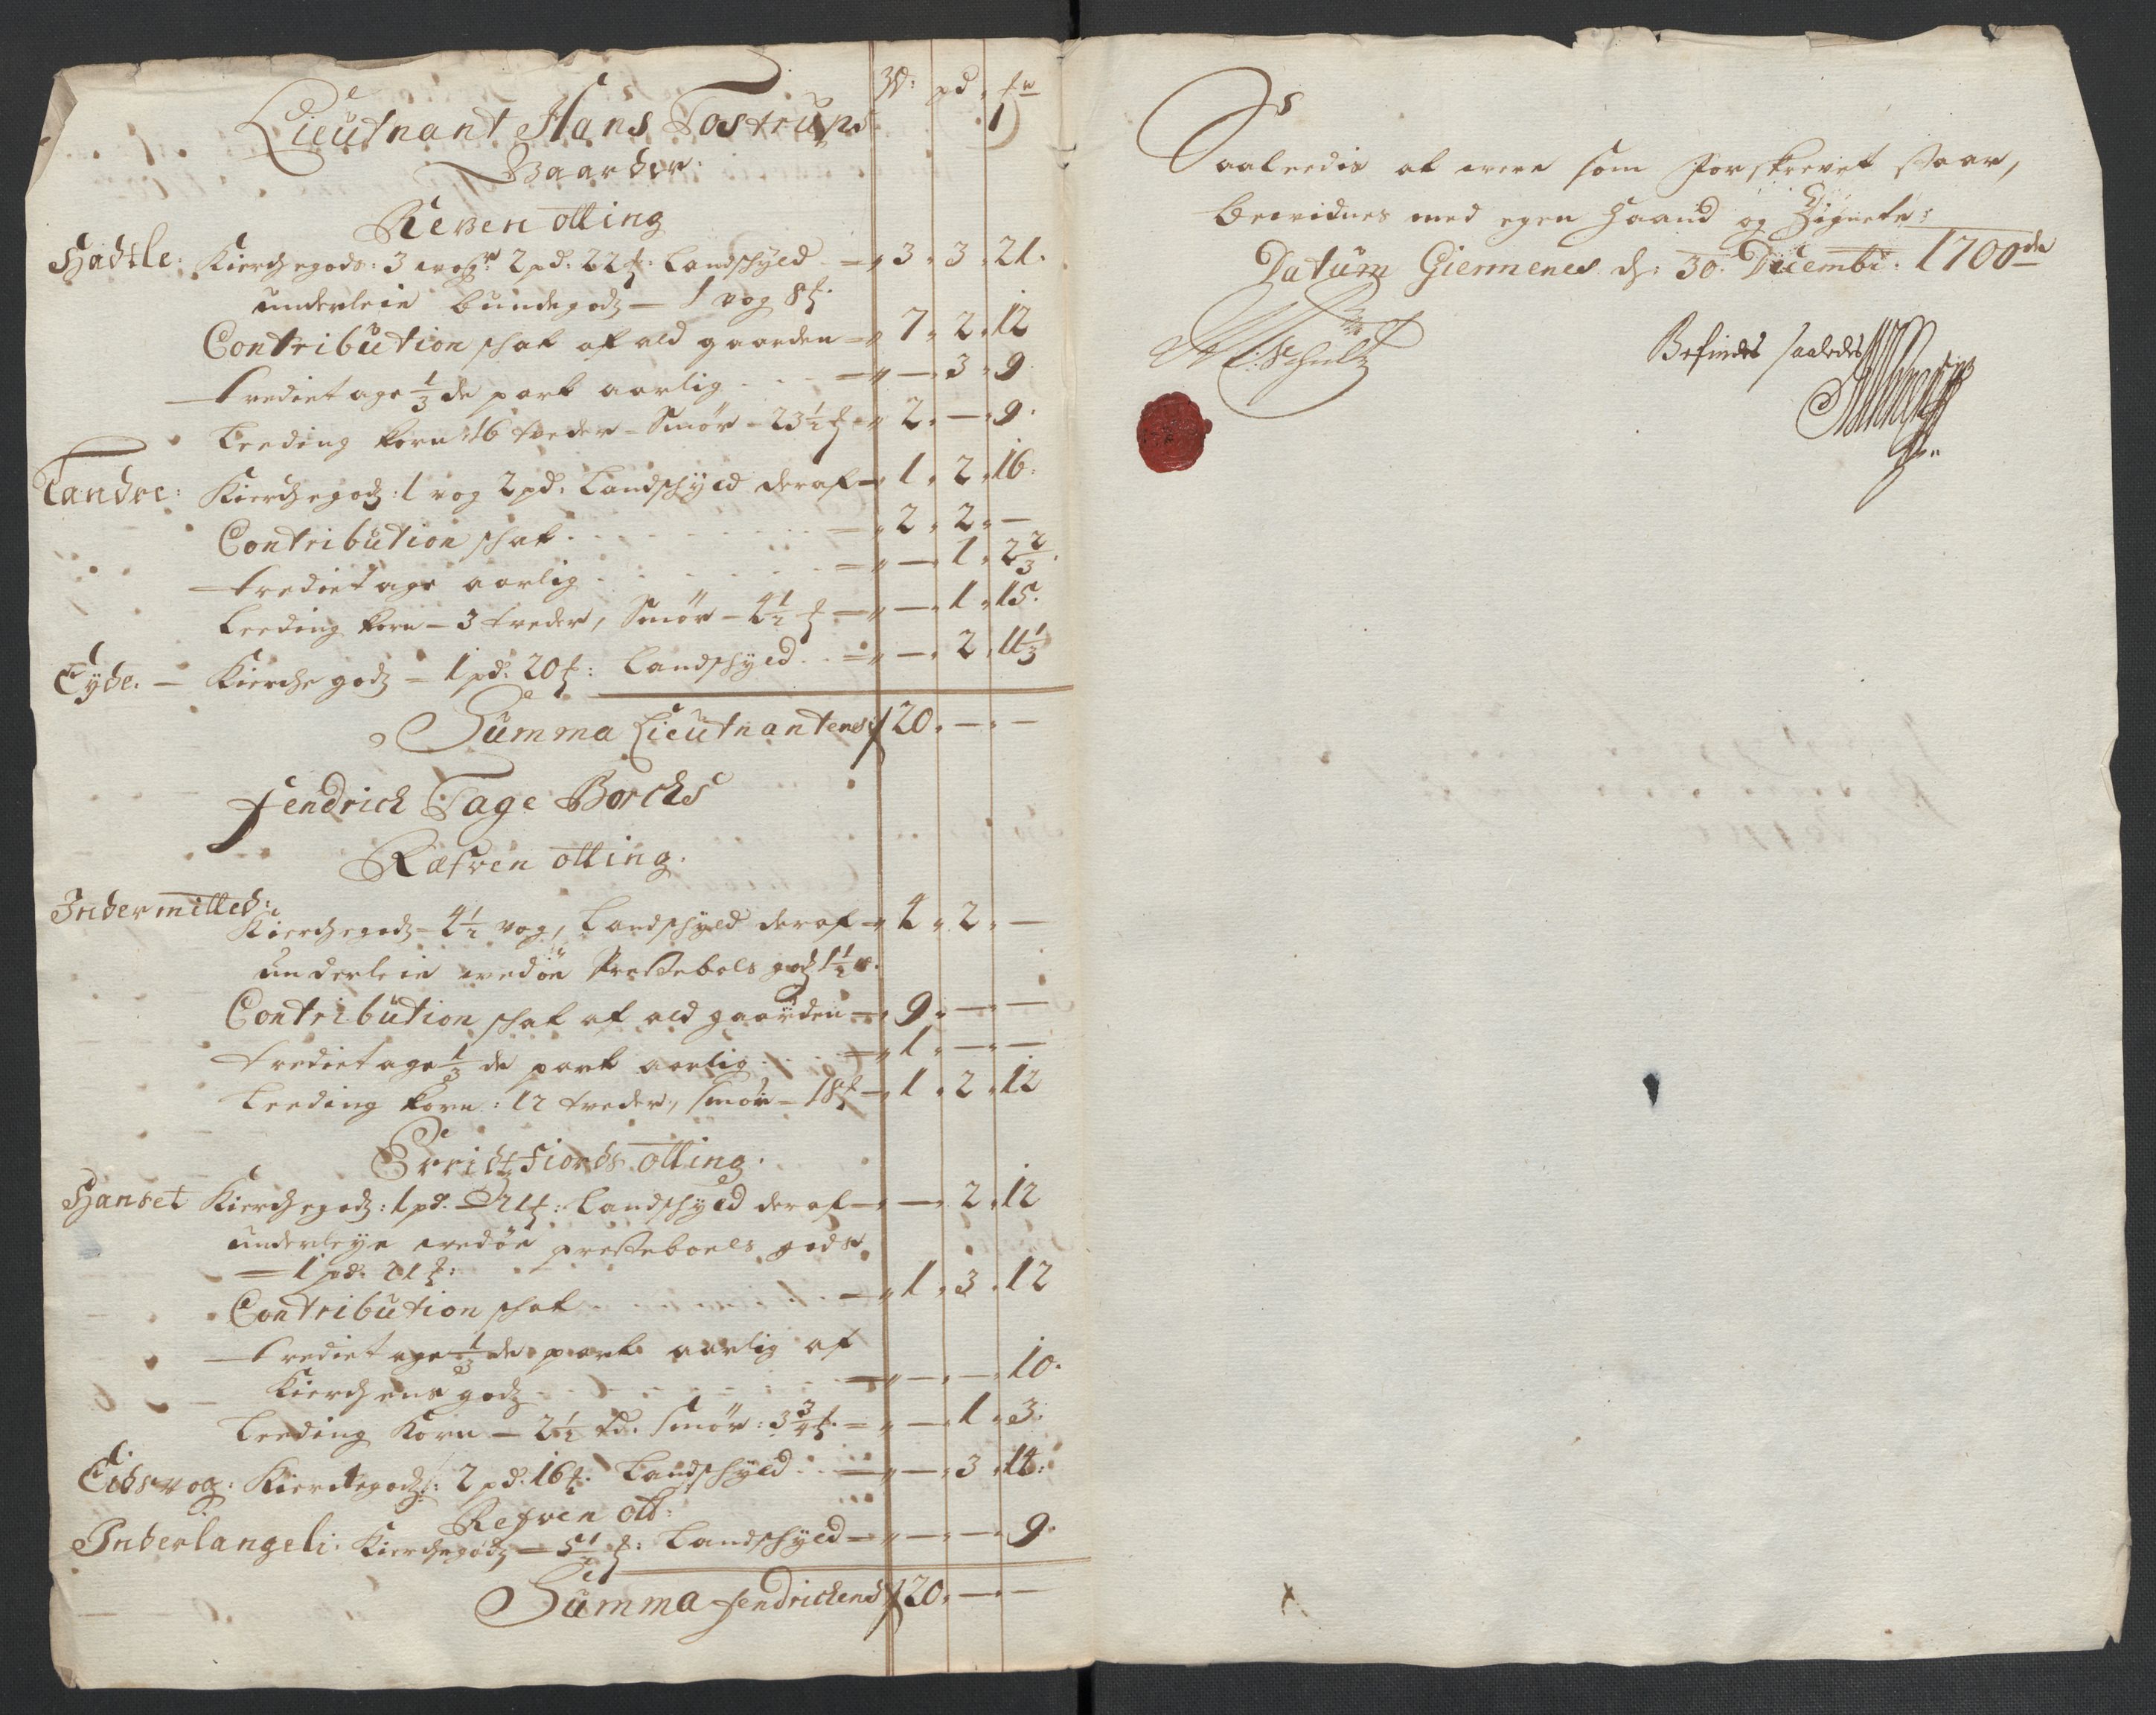 Rd: pd: fr
1
Lieutnant Hans Tostrups
Gaarder:
Reven otting
Hadtle: Kierchegods: 3 woger 2 pd: 22 ℔: Landschyld — 3. 3. 21.
underleie bundegodz — 1 vog 8 ℔.
Contribution schat af ald gaarden — 7. 2. 12
tredietage 1/3 de part aarlig . . . — — 3. 9
Leeding korn 16 tveder - Smör - 23 1/2 ℔ — 2. — 9.
Tandre: Kierchegodz: 1 vog 2 pd: Landschyld deraf — 1. 2. 16.
Contribution schat . . . — 2. 2. —
tredietage aarlig . . . — — 1. 2 2/3.
Leeding korn — 3 treder, Smör — 4 1/2 ℔ — — 1. 15.
Eyde. — Kierchegodz — 1 pd: 20 ℔: Landschyld . . — — 2. 11 1/3
Summa Lieutnantens 20. — —
Fendrich Tage Borchs
Ræfven otting.
Indermitled:
Kierchegodz — 4 1/2 vog, Landschyld deraf — 4. 2. —
underleie Prestebols godz 1 1/2 v.
Contribution schat af ald gaarden — 9. — —
tredietage 1/3 de part aarlig . . . — 1. — —
Leeding korn: 12 treder, smör — 18 ℔ — 1. 2. 12
otting.
Hanset Kierchegodz: 1 pd. 21 ℔: Landschyld deraf — — 2. 12
underleye presteboels gods
— 1 pd. 21 ℔:
Contribution schat . . . — 1. 3. 12
tredietage 1/3 de part aarlig af
Kierchens godz . . . — — — 10.
Leeding Korn — 2 1/2 td. smör: 3 3/4 ℔. — — 1. 3.
Eidsvog: Kierchegodz: 2 pd. 16 ℔. Landschyld . . — — 3. 14.
Refven ott:
Inderlangeli: Kierchegodz — 5 1/2 ℔: Landschyld — — — 9.
Summa fendrichens 20. — —
Saaledis at were som forskrevet staar,
bevidnes med egen Haand og Zignete:
Datum Giermenes d: 30. Decembr: 1700de
Schultz
Befindes saaledes